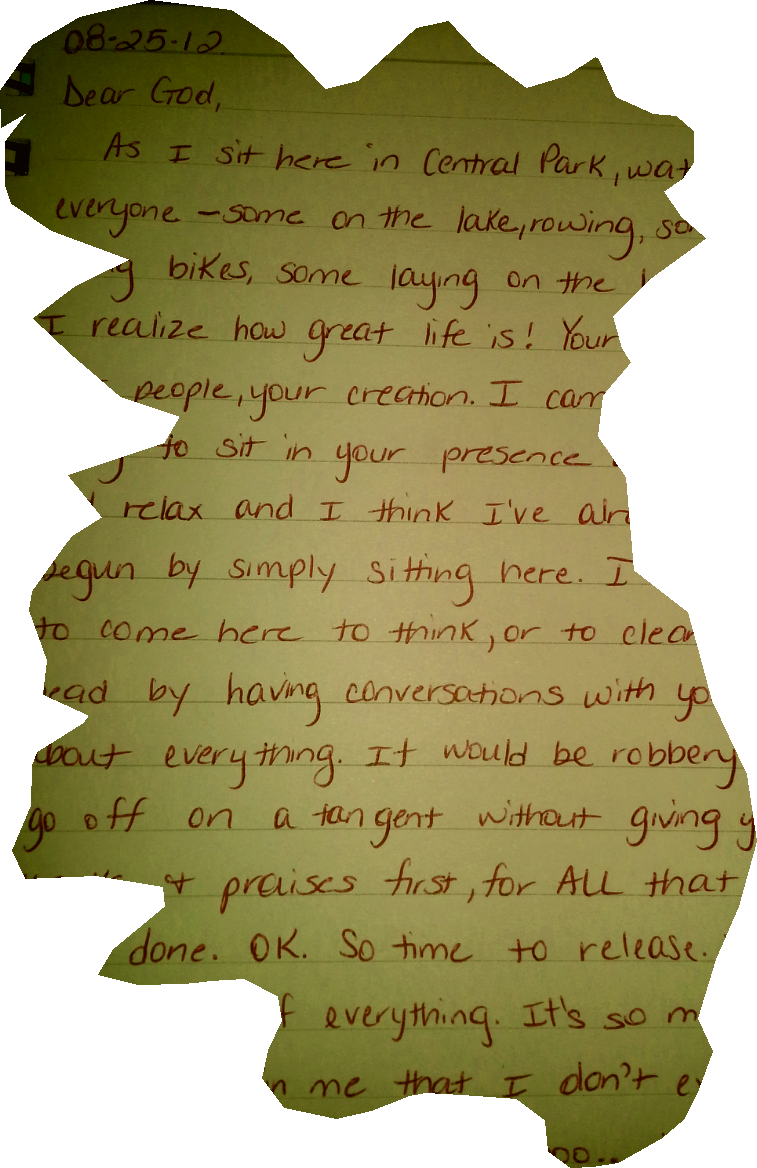 08-25-12
Dear God,
As I sit here in Central Park, wat
everyone - some on the lake, rowing, so
g bikes, some laying on the
I realize how great life is! Your
people, your creation. I can
to sit in your presence
relax and I think I've alr
begun by simply sitting here. I
to come here to think, or to clear
ead by having conversations with yo
about everything. It would be robbery
go off on a tangent without giving y
+ praises first, for ALL that
done. OK. So time to release.
f everything. It's so m
n me that I don't e
oo..